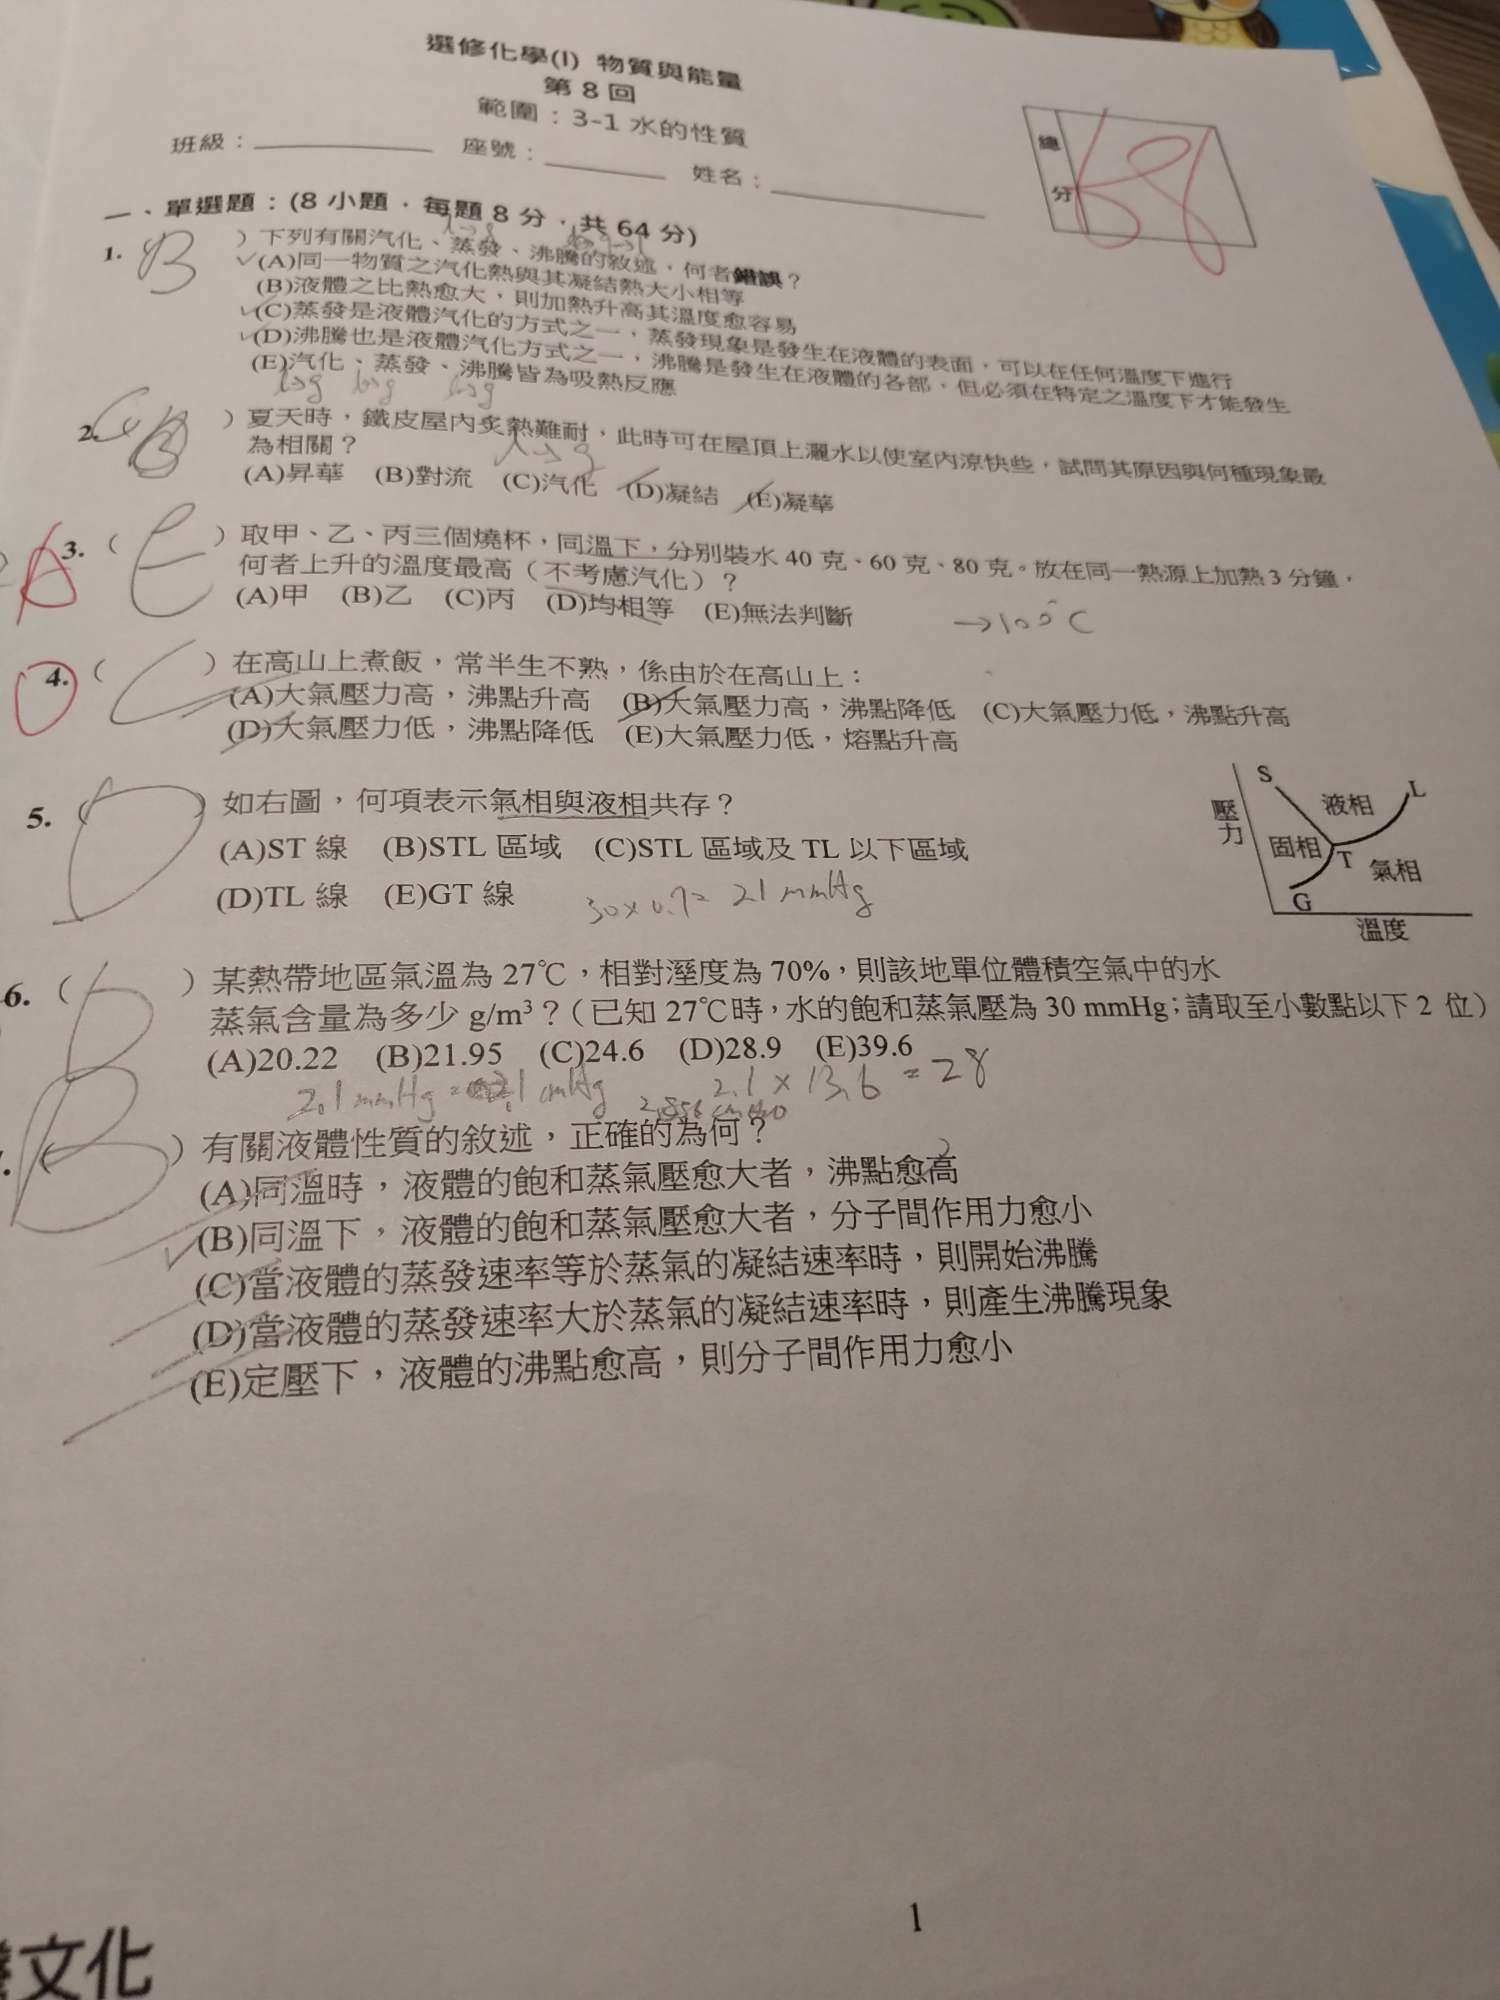 選修化學(I) 物質與能量
第 8 回
範圍：3-1 水的性質
班級：
座號：
姓名：
總分
68
一、單選題：(8 小題，每題 8 分，共 64 分)
1. B ）下列有關汽化、蒸發、沸騰的敘述，何者錯誤？
(A)同一物質之汽化熱與其凝結熱大小相等
(B)液體之比熱愈大，則加熱升高其溫度愈容易
(C)蒸發是液體汽化的方式之一，蒸發現象是發生在液體的表面，可以在任何溫度下進行
(D)沸騰也是液體汽化方式之一，沸騰是發生在液體的各部，但必須在特定之溫度下才能發生
(E)汽化、蒸發、沸騰皆為吸熱反應
2. ）夏天時，鐵皮屋內炙熱難耐，此時可在屋頂上灑水以使室內涼快些，試問其原因與何種現象最
為相關？
(A)昇華 (B)對流 (C)汽化 (D)凝結 (E)凝華
A 3.（ E ）取甲、乙、丙三個燒杯，同溫下，分別裝水 40 克、60 克、80 克。放在同一熱源上加熱 3 分鐘，
何者上升的溫度最高（不考慮汽化）？
(A)甲 (B)乙 (C)丙 (D)均相等 (E)無法判斷
→100°C
4.（ C ）在高山上煮飯，常半生不熟，係由於在高山上：
(A)大氣壓力高，沸點升高 (B)大氣壓力高，沸點降低 (C)大氣壓力低，沸點升高
(D)大氣壓力低，沸點降低 (E)大氣壓力低，熔點升高
5.（ D ）如右圖，何項表示氣相與液相共存？
(A)ST 線 (B)STL 區域 (C)STL 區域及 TL 以下區域
(D)TL 線 (E)GT 線
30×0.7= 21 mmHg
壓力
S
液相
L
固相
T
氣相
G
溫度
6.（ B ）某熱帶地區氣溫為 27℃，相對溼度為 70%，則該地單位體積空氣中的水
蒸氣含量為多少 g/m³？（已知 27℃時，水的飽和蒸氣壓為 30 mmHg；請取至小數點以下 2 位）
(A)20.22 (B)21.95 (C)24.6 (D)28.9 (E)39.6
2.1 × 13.6 = 28
（ B ）有關液體性質的敘述，正確的為何？
(A)同溫時，液體的飽和蒸氣壓愈大者，沸點愈高
(B)同溫下，液體的飽和蒸氣壓愈大者，分子間作用力愈小
(C)當液體的蒸發速率等於蒸氣的凝結速率時，則開始沸騰
(D)當液體的蒸發速率大於蒸氣的凝結速率時，則產生沸騰現象
(E)定壓下，液體的沸點愈高，則分子間作用力愈小
1
文化